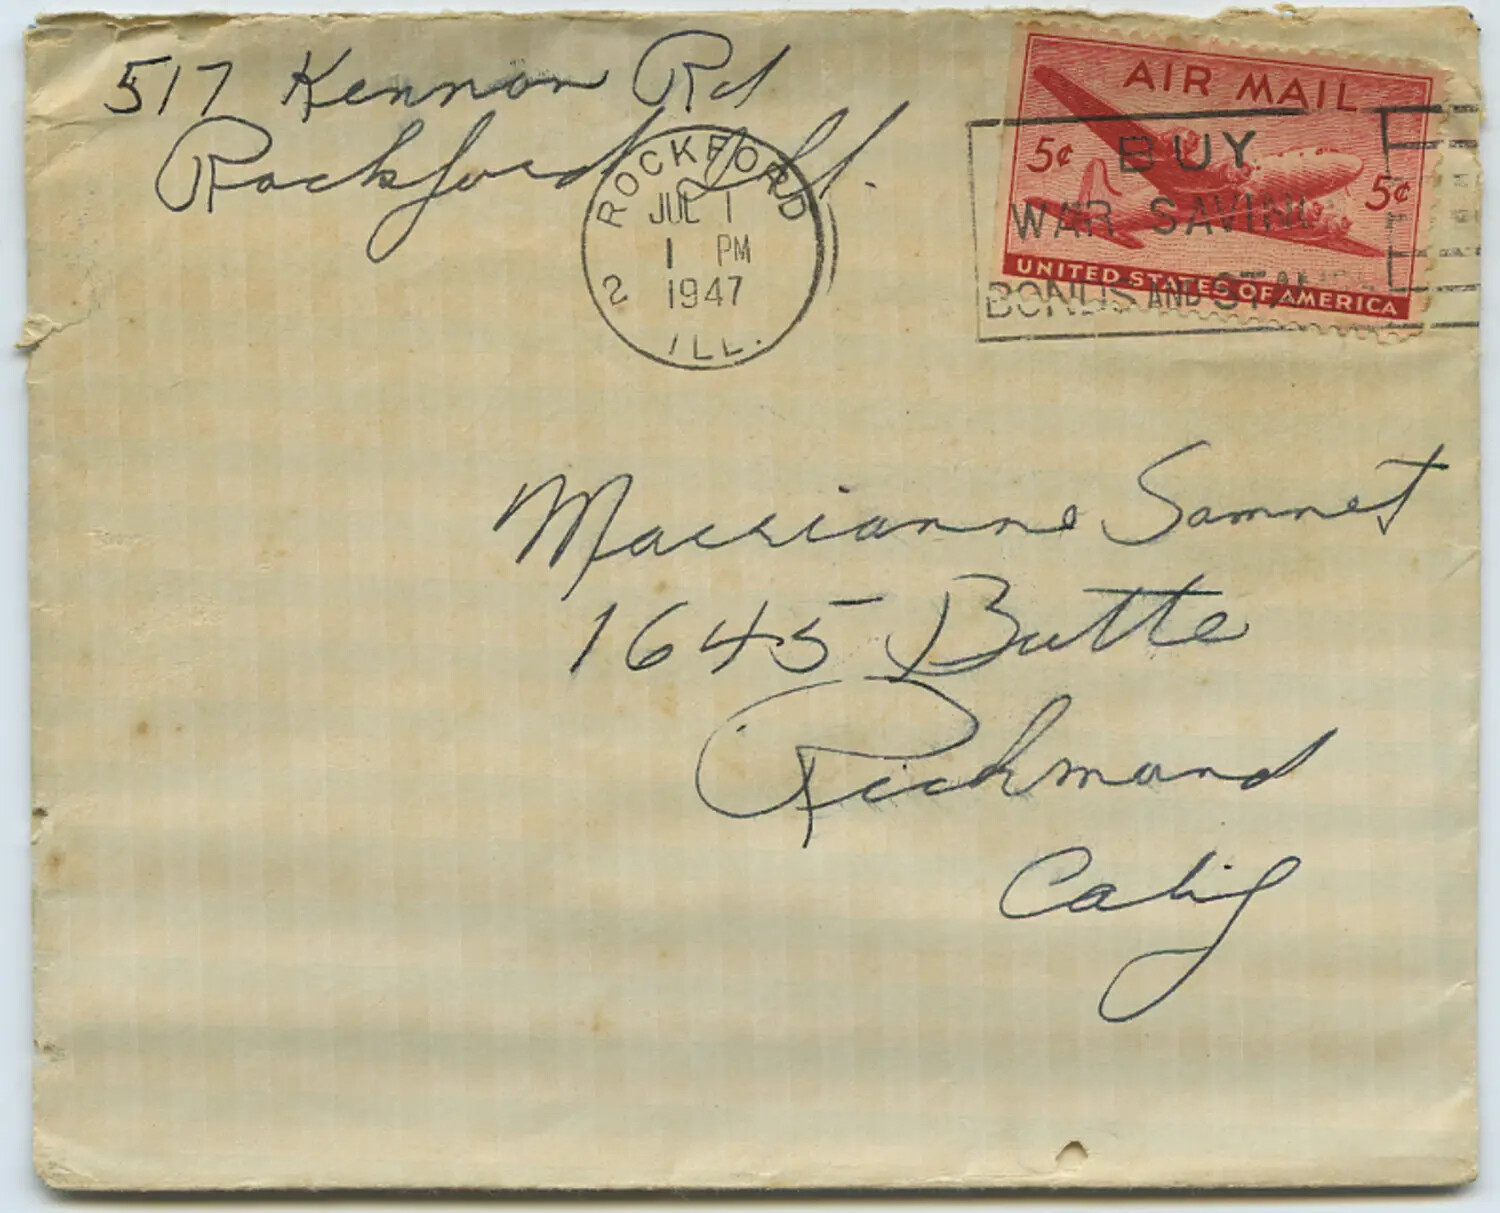 517 Kennon Rd
Rockford Ill.
ROCKFORD
JUL 1
1 PM
1947
2
ILL.
AIR MAIL
5¢
5¢
UNITED STATES OF AMERICA
BUY
WAR SAVIN
BONDS AND STAMPS
Marianne Samnet
1645 Butte
Richmond
Calif